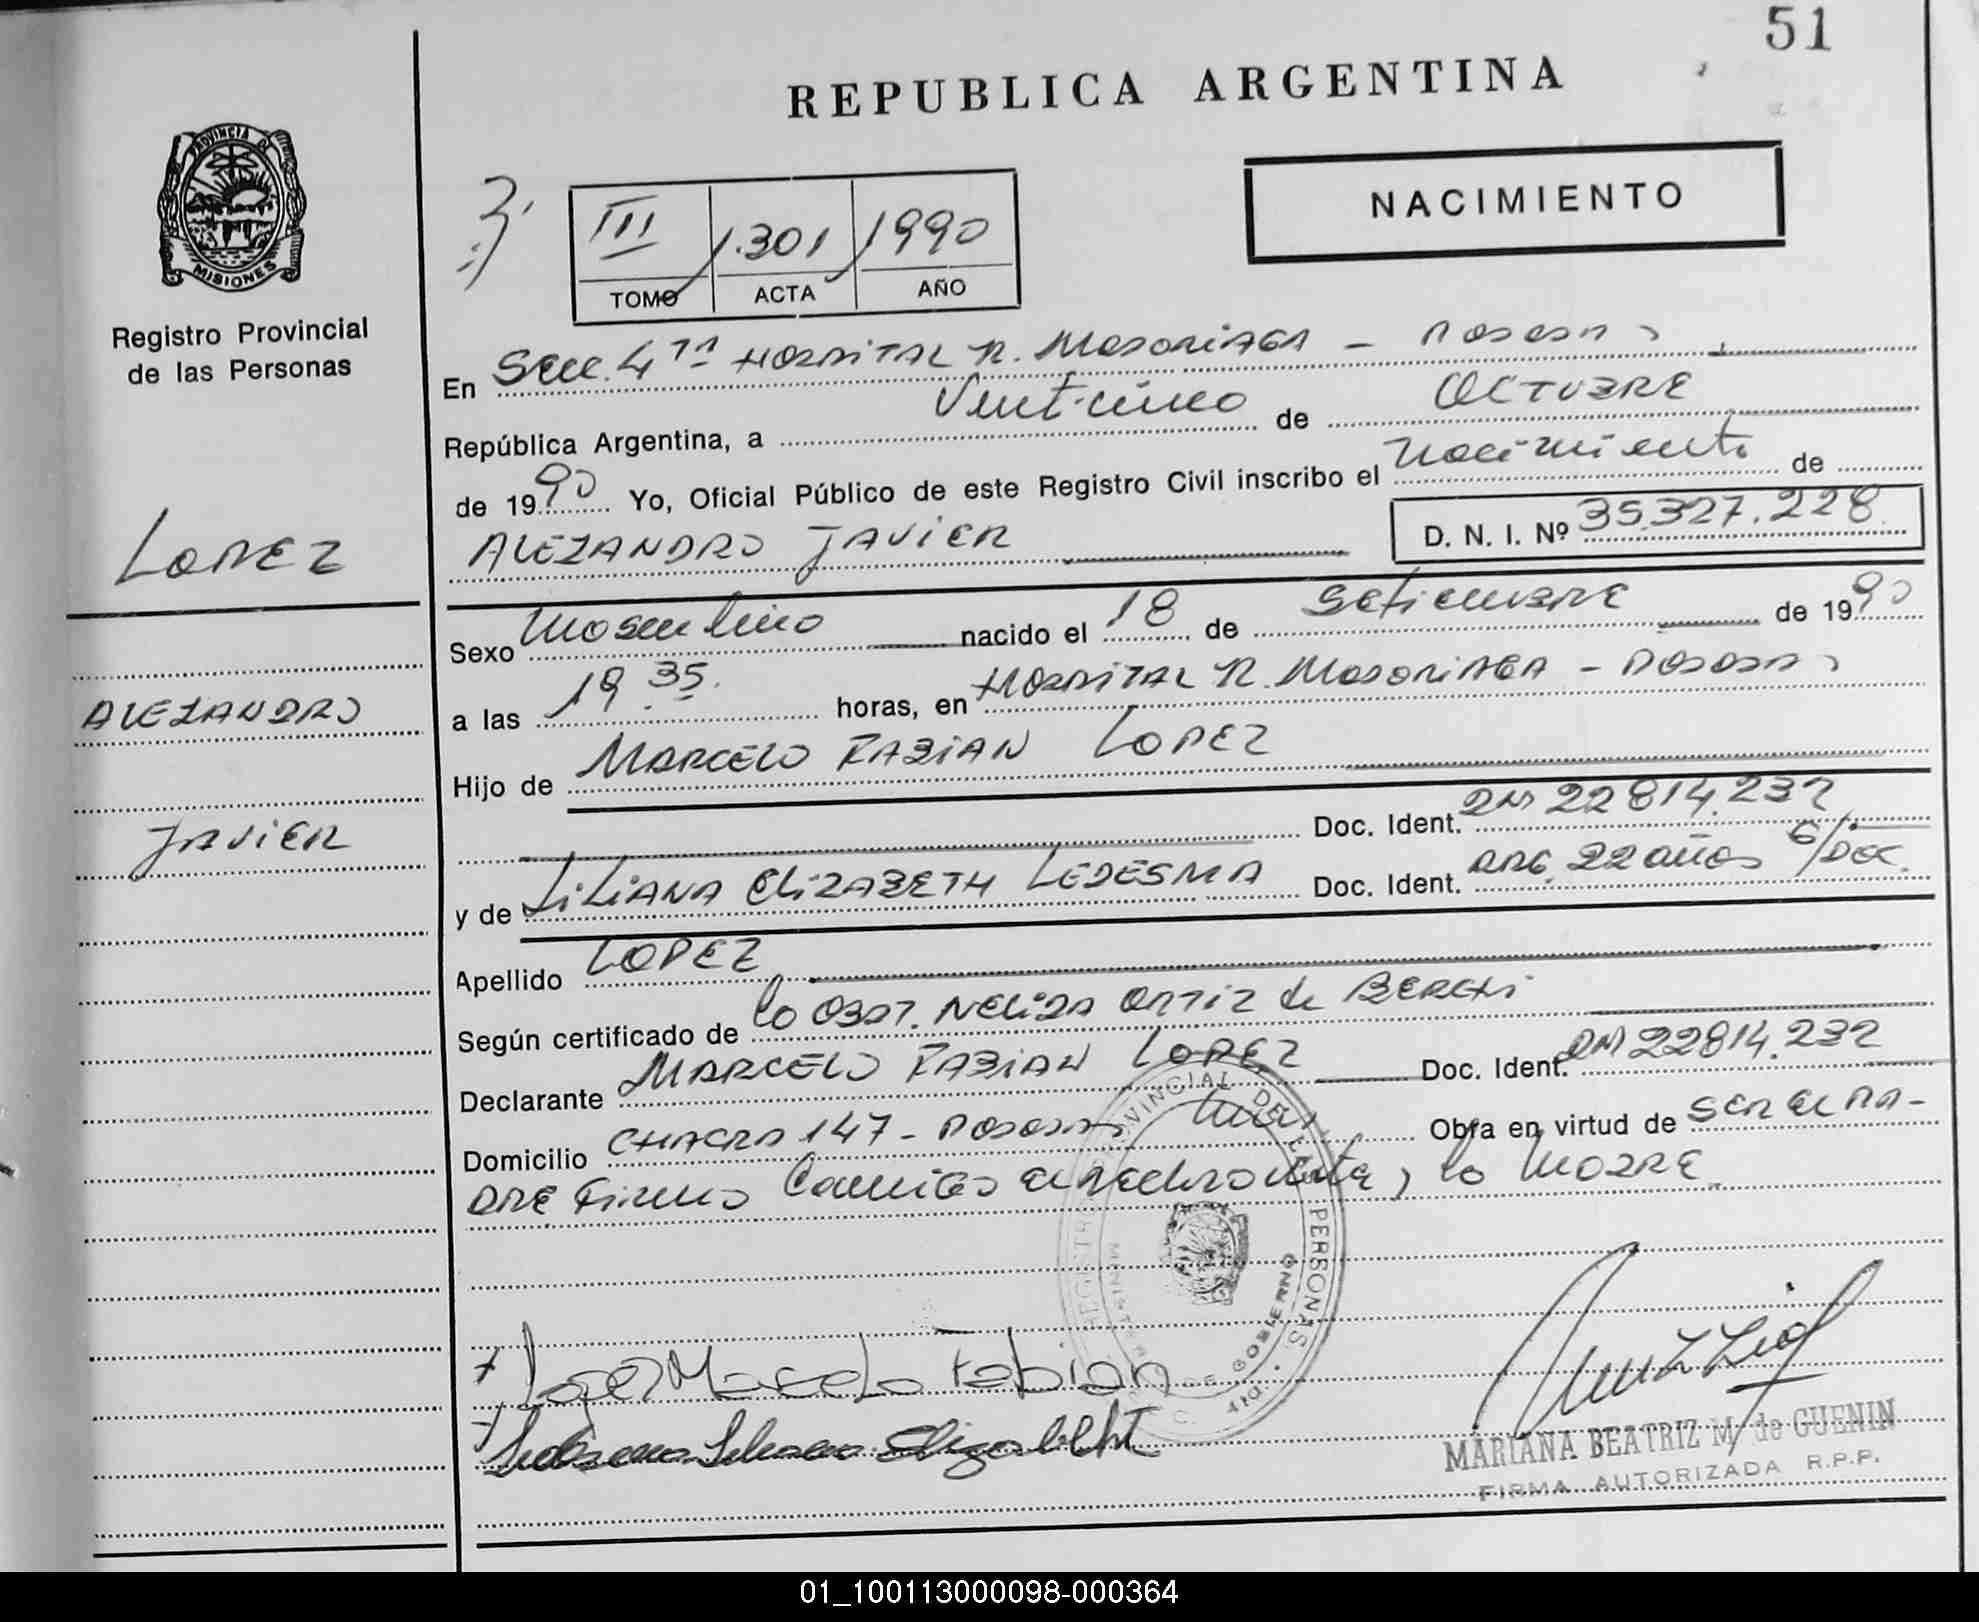 51
REPUBLICA ARGENTINA
NACIMIENTO
PROVINCIA D
MISIONES
Registro Provincial
de las Personas
LOPEZ
ALEJANDRO
JAVIER
III 1.301 1990
TOMO ACTA AÑO
En Secc. 4ta HOSPITAL R. MADARIAGA - POSADAS
República Argentina, a Veinticinco de OCTUBRE
de 1990 Yo, Oficial Público de este Registro Civil inscribo el nacimiento de
ALEJANDRO JAVIER D. N. I. Nº 35.327.228
Sexo Masculino nacido el 18 de SETIEMBRE de 1990
a las 19 35 horas, en HOSPITAL R. MADARIAGA - POSADAS
Hijo de MARCELO FABIAN LOPEZ
Doc. Ident. DNI 22814.232
y de LILIANA ELIZABETH LEDESMA Doc. Ident. ARG. 22 años S/DOC.
Apellido LOPEZ
Según certificado de la OBST. NELIDA ORTIZ de
Declarante MARCELO FABIAN LOPEZ Doc. Ident. DNI 22814.232
Domicilio CHACRA 147 - POSADAS Mnes Obra en virtud de SER EL PA-
DRE Firma el declarante, la MADRE
REGISTRO PROVINCIAL DE LAS PERSONAS
DE GOBIERNO
Lopez Marcelo Fabian
Ledesma Liliana Elizabeht
MARIANA BEATRIZ M. de GUENIN
FIRMA AUTORIZADA R.P.P.
01_100113000098-000364